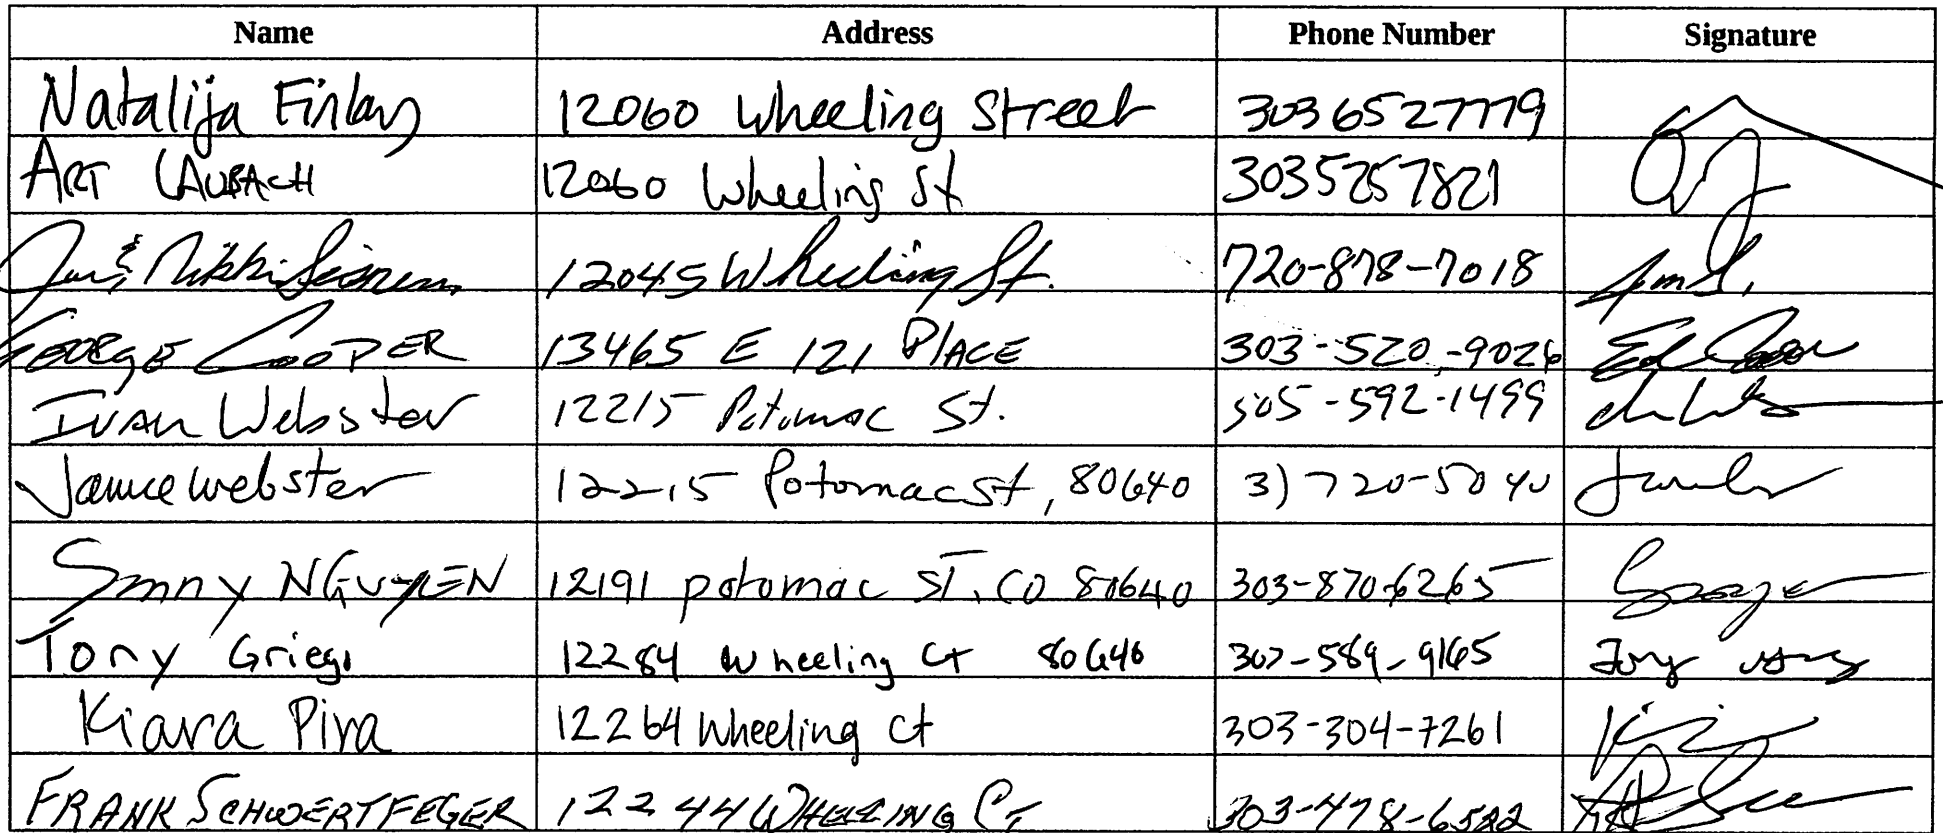 Name Address Phone Number Signature
Natalija Finlay 12060 Wheeling Street 3036527779
ART LAUBACH 12060 Wheeling St 3035257821
Jim & Nikki 12045 Wheeling St. 720-878-7018
GEORGE COOPER 13465 E 121 PLACE 303-520-9026
IVAN Webster 12215 Potomac St. 505-592-1499
Janice Webster 12215 Potomac St, 80640 3) 720-5040
Sonny NGUYEN 12191 potomac ST. CO 80640 303-870-6265
Tony Griego 12284 Wheeling Ct 80640 303-589-9165
Kiara Piva 12264 Wheeling Ct 303-304-7261
FRANK SCHWERTFEGER 12244 WHEELING CT 303-478-6522